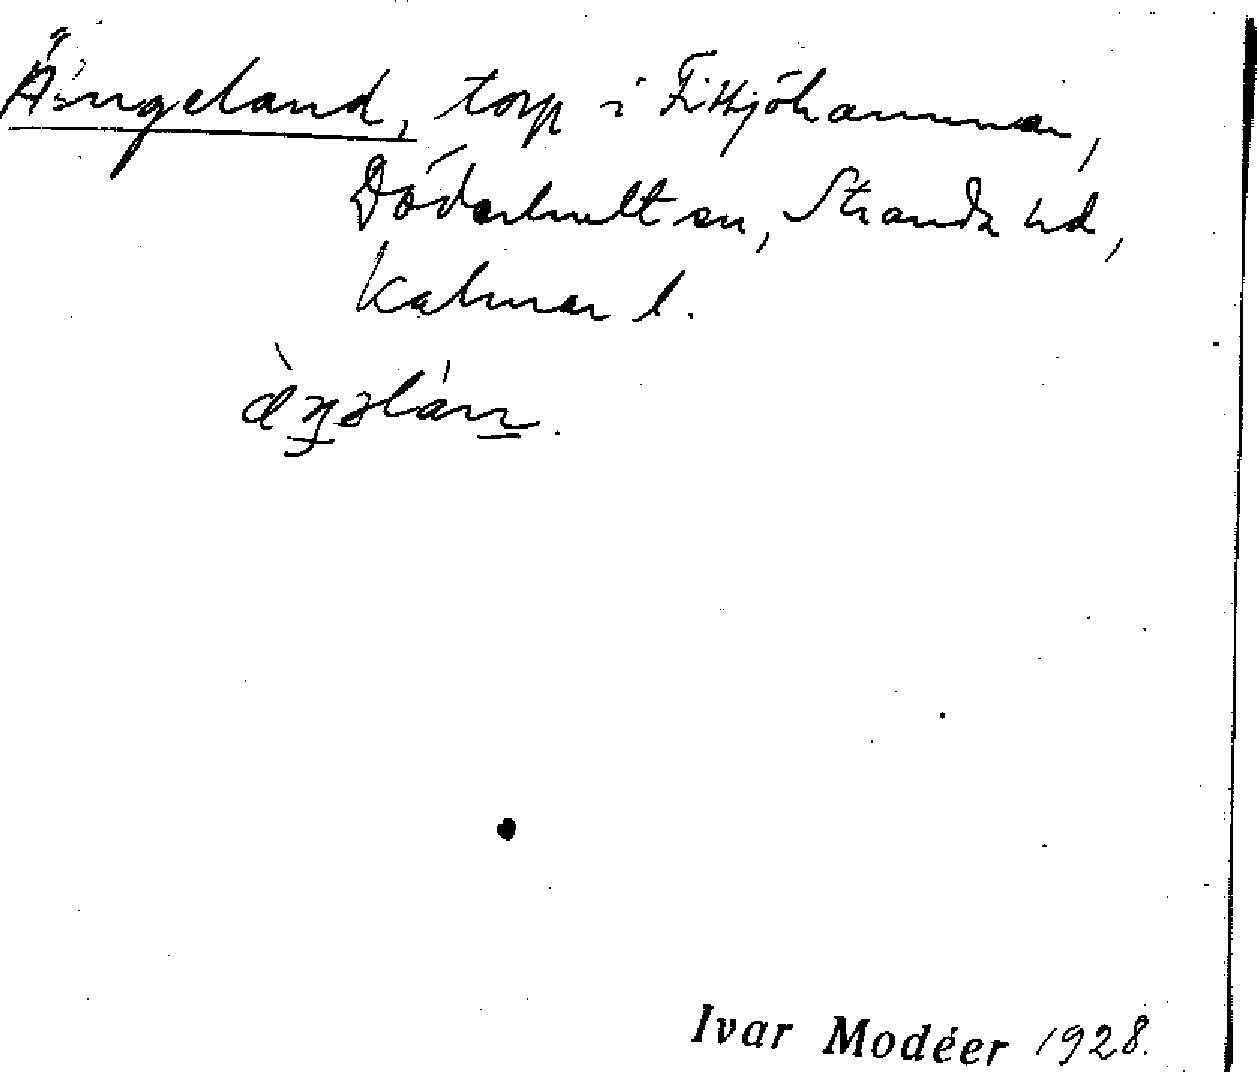 Ängeland, torp i Fittjöhammar,
Döderhult sn, Stranda hd,
Kalmar l.
Ivar Modéer 1928.